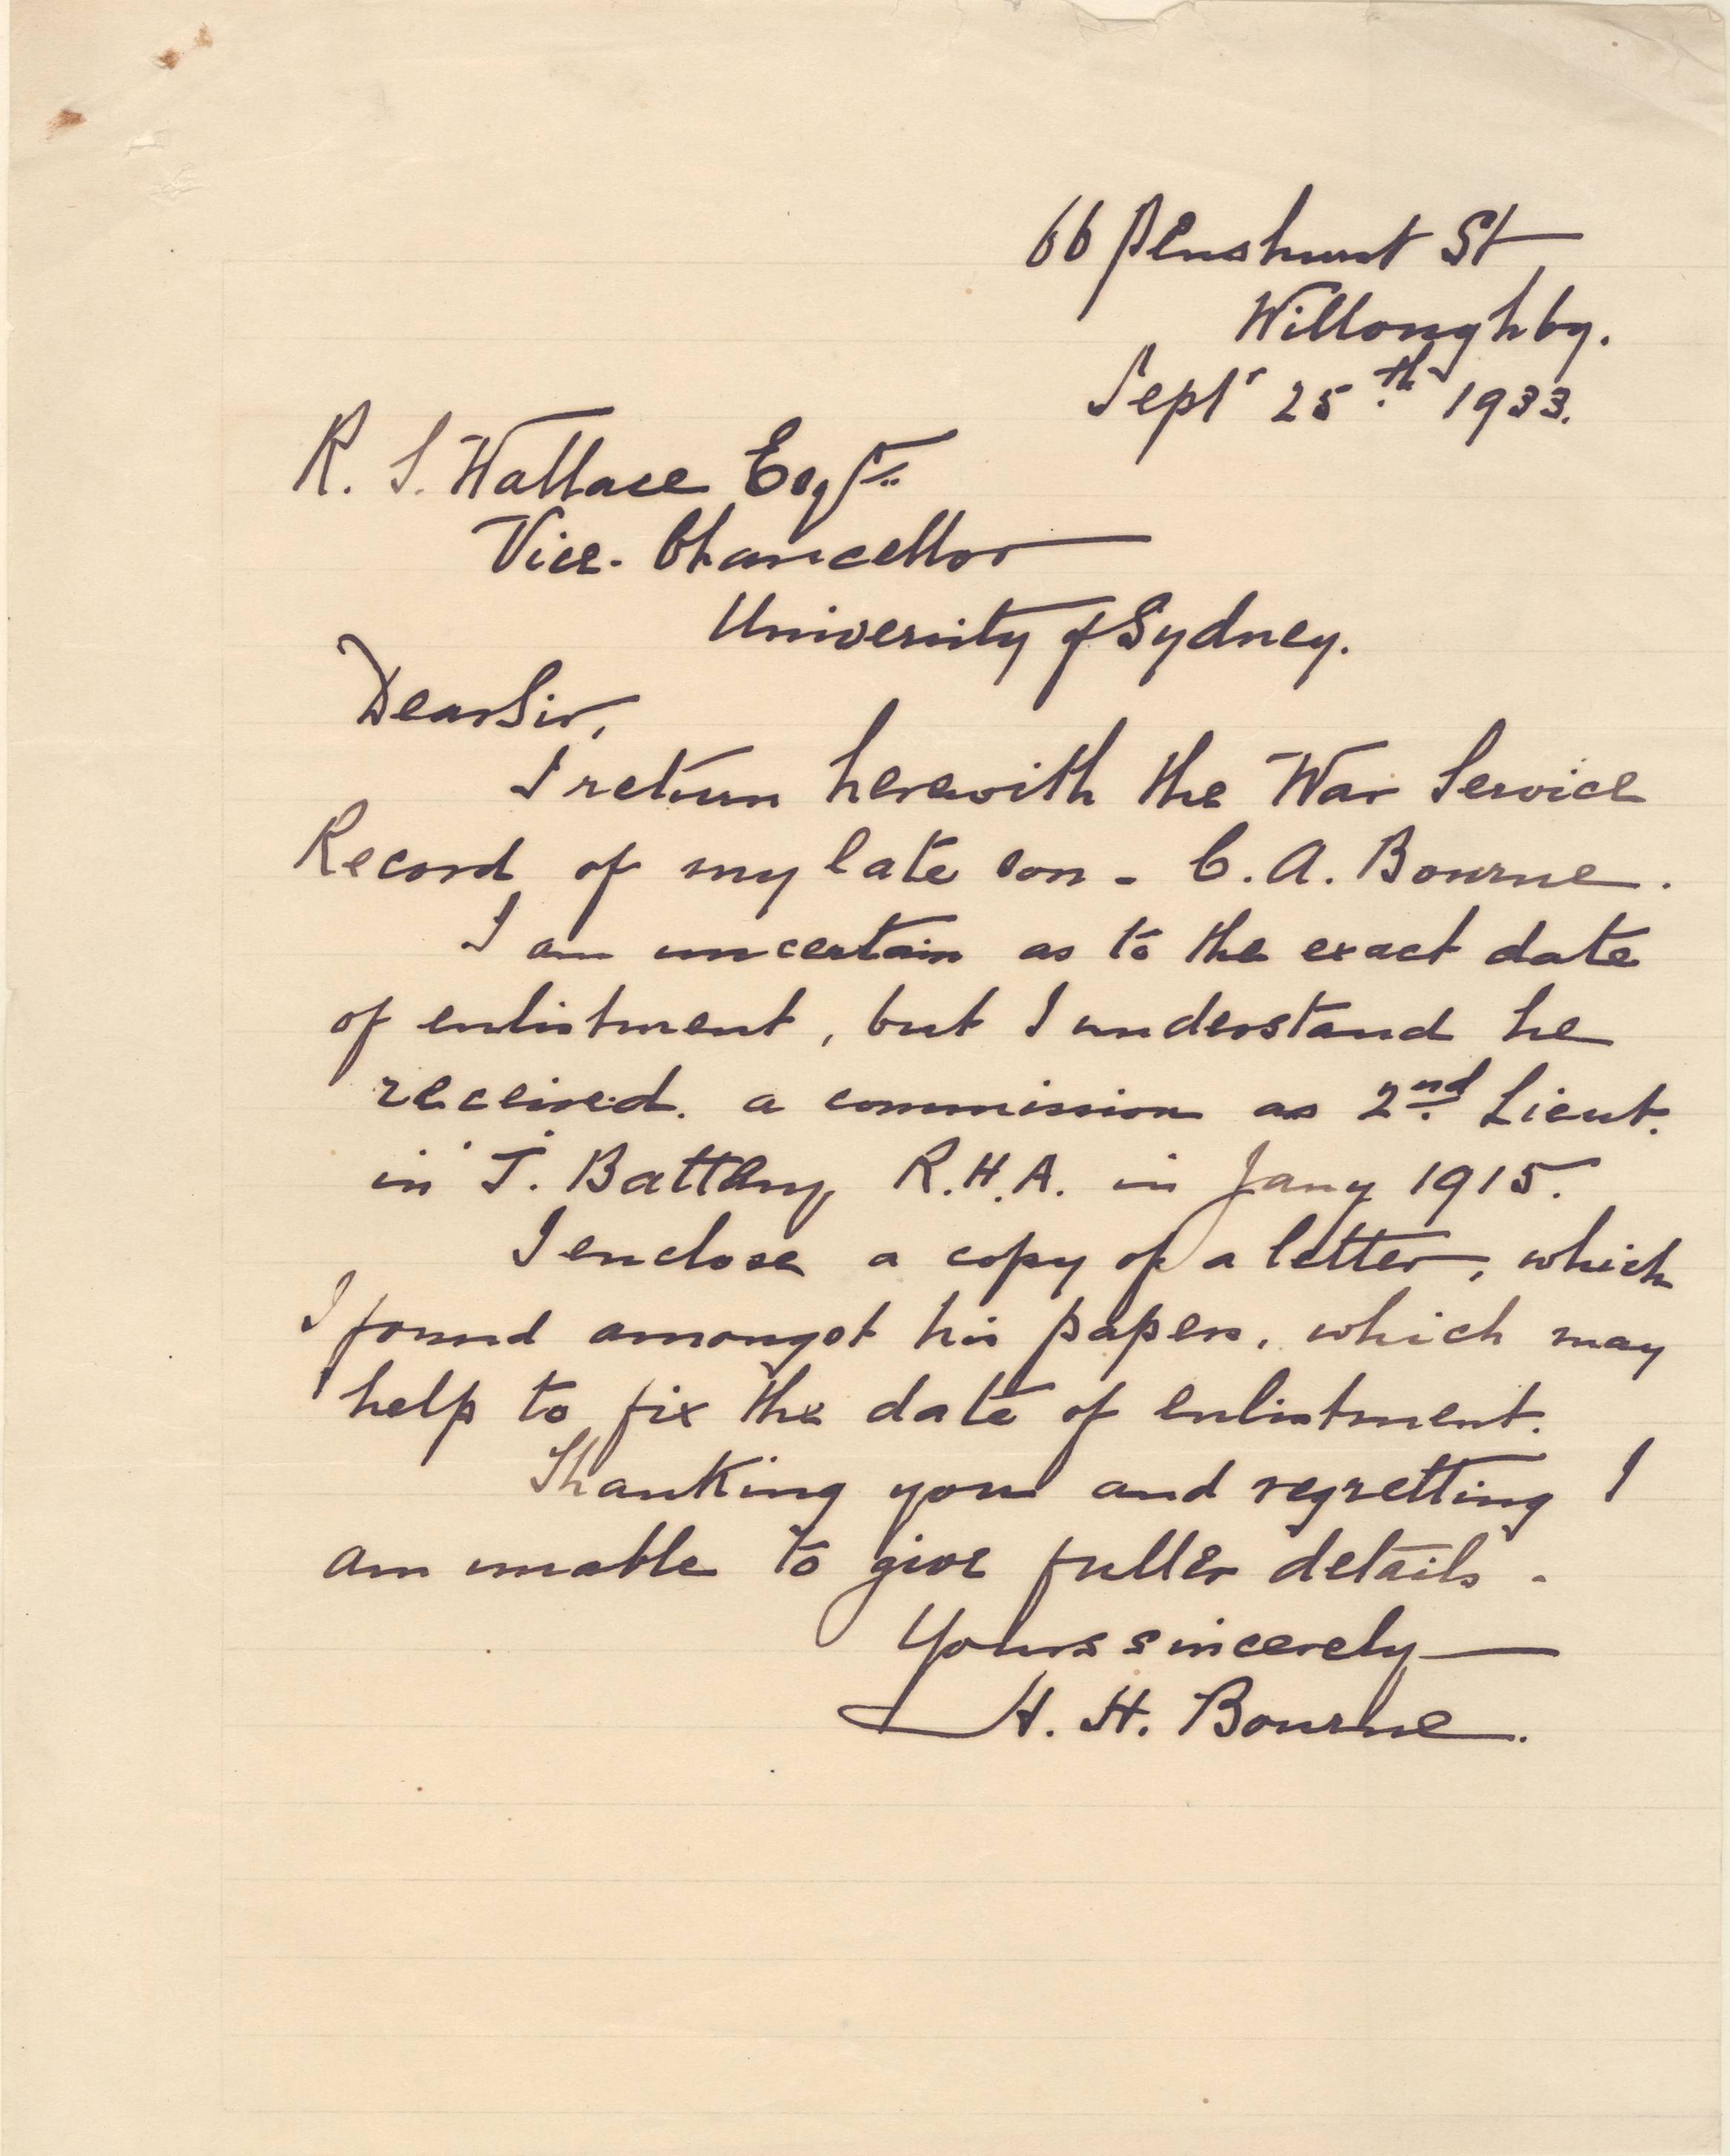 66 Penshurst St
Willoughby.
Septr 25th 1933.
R. S. Wallace Esqre
Vice-Chancellor
University of Sydney.
Dear Sir,
I return herewith the War Service
Record of my late son - C. A. Bourne.
I am uncertain as to the exact date
of enlistment, but I understand he
received a commission as 2nd Lieut.
in J. Battery R.H.A. in Jany 1915.
I enclose a copy of a letter, which
I found amongst his papers, which may
help to fix the date of enlistment.
Thanking you and regretting I
am unable to give fuller details -
Yours sincerely
H. H. Bourne.